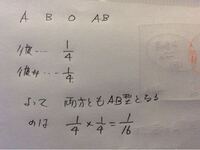 A B O AB
彼… 1/4
彼女… 1/4
よって 両方ともAB型となる
のは 1/4 × 1/4 = 1/16